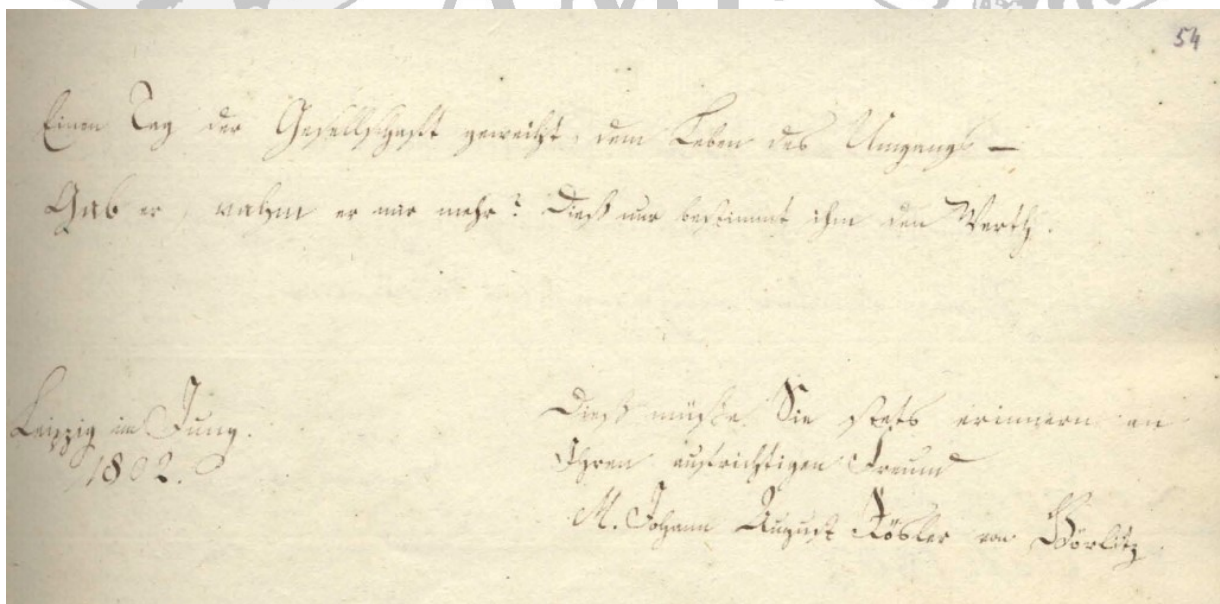 54
Einen Tag der Gesellschaft geweiht, dem Leben des Umgangs –
Gab er, nahm er nur mehr? Dieß nur bestimmt ihm den Werth.
Leipzig im Juny.
1802.
Dieß müsse Sie stets erinnern an
Ihren aufrichtigen Freund
M. Johann August Rösler von Görlitz